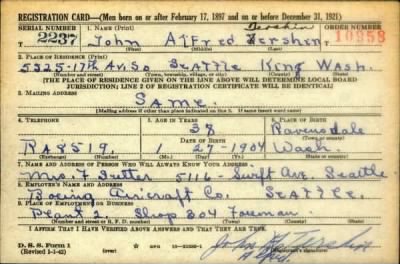 REGISTRATION CARD—(Men born on or after February 17, 1897 and on or before December 31, 1921)
SERIAL NUMBER 1. NAME (Print) ORDER NUMBER
2237 John Alfred Kershen 10953
(First) (Middle) (Last)
2. PLACE OF RESIDENCE (Print)
5325-17th Av. So Seattle King Wash.
(Number and street) (Town, township, village, or city) (County) (State)
[THE PLACE OF RESIDENCE GIVEN ON THE LINE ABOVE WILL DETERMINE LOCAL BOARD
JURISDICTION; LINE 2 OF REGISTRATION CERTIFICATE WILL BE IDENTICAL]
3. MAILING ADDRESS
Same.
(Mailing address if other than place indicated on line 2. If same insert word same)
4. TELEPHONE 5. AGE IN YEARS 6. PLACE OF BIRTH
38 Ravensdale
DATE OF BIRTH
RA 8519 1 27 1904 Wash.
(Exchange) (Number) (Mo.) (Day) (Yr.)
7. NAME AND ADDRESS OF PERSON WHO WILL ALWAYS KNOW YOUR ADDRESS
Mrs. F 5116- Swift Ave. Seattle
8. EMPLOYER'S NAME AND ADDRESS
Boeing Aircraft Co. Seattle.
9. PLACE OF EMPLOYMENT OR BUSINESS
Plant 2 - Shop 304 Foreman.
(Number and street or R. F. D. number) (Town)
I AFFIRM THAT I HAVE VERIFIED ABOVE ANSWERS AND THAT THEY ARE TRUE.
D. S. S. Form 1
(Revised 1-1-42) John